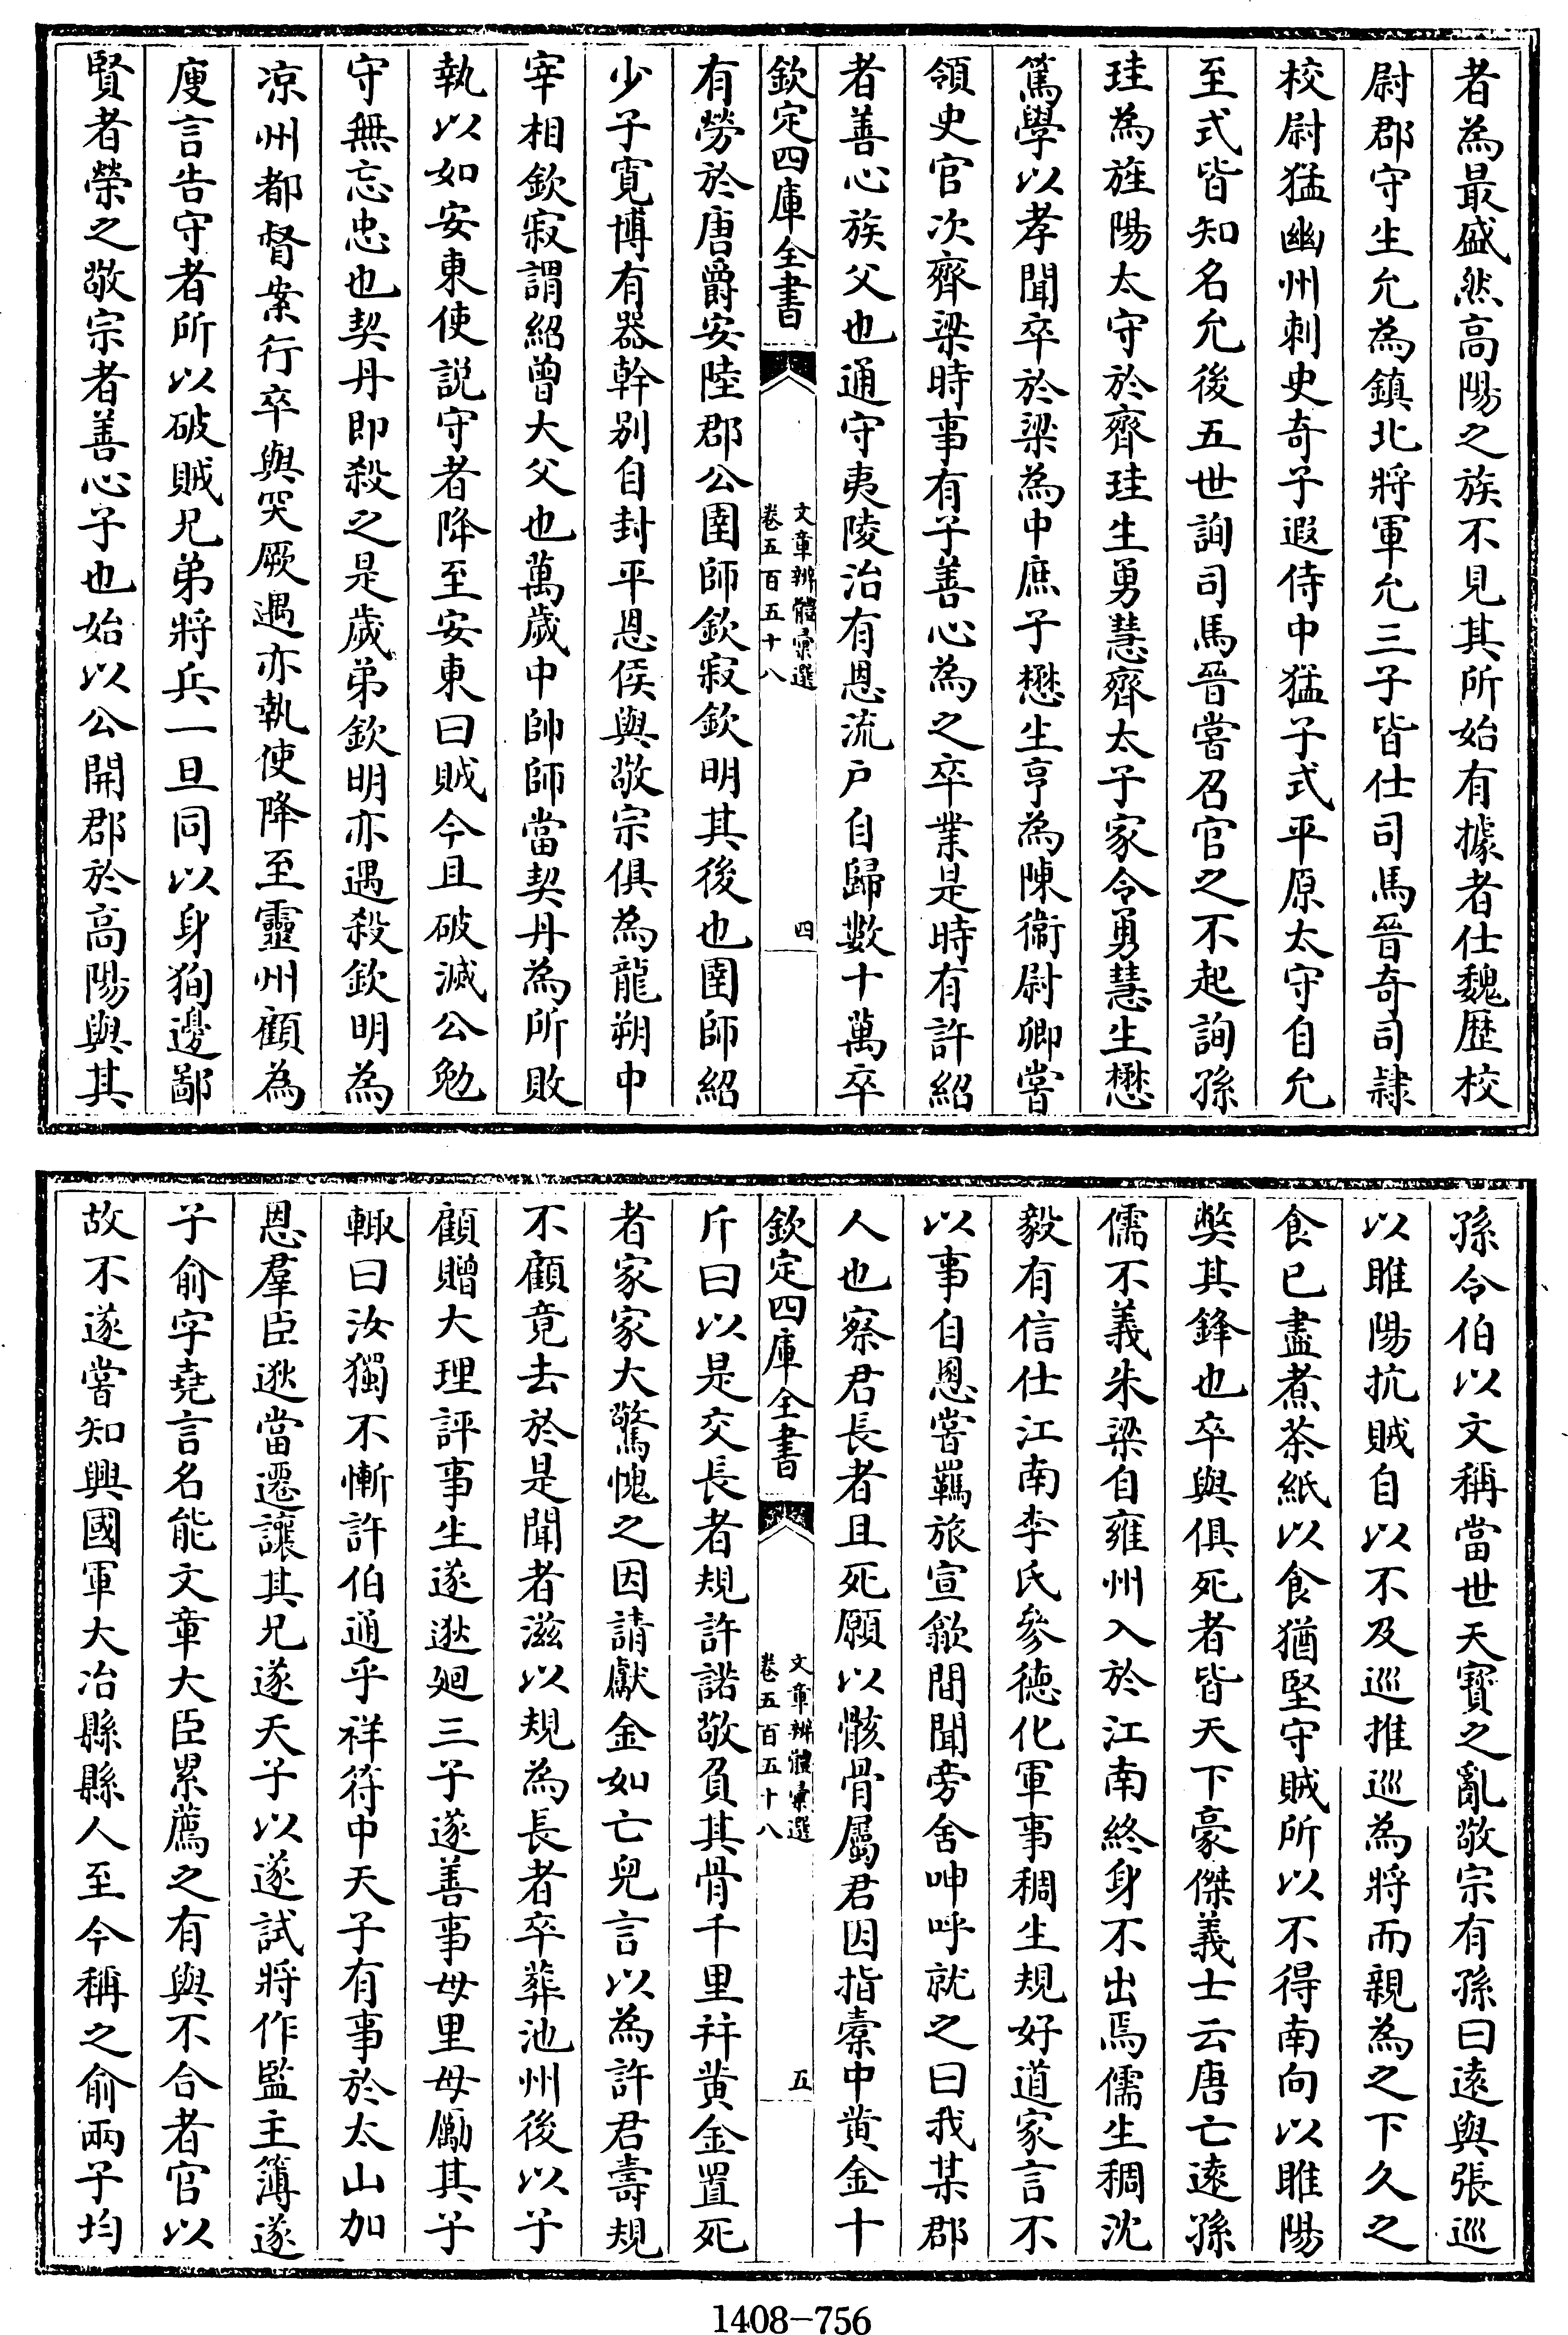 者為最盛然高陽之族不見其所始有據者仕魏歴校
尉郡守生允為鎮北將軍允三子皆仕司馬晉奇司隷
校尉猛幽州刺史奇子遐侍中猛子式平原太守自允
至式皆知名允後五世詢司馬晉嘗召官之不起詢孫
珪為旌陽太守於齊珪生勇慧齊太子家令勇慧生懋
篤學以孝聞卒於梁為中庶子懋生亨為陳衞尉卿嘗
領史官次齊梁時事有子善心為之卒業是時有許紹
者善心族父也通守夷陵治有恩流户自歸數十萬卒
欽定四庫全書
文章辨體彙選
卷五百五十八
四
有勞於唐爵安陸郡公圉師欽寂欽明其後也圉師紹
少子寛博有器幹别自封平恩侯與敬宗俱為龍朔中
宰相欽寂謂紹曾大父也萬歲中帥師當契丹為所敗
執以如安東使説守者降至安東曰賊今且破滅公勉
守無忘忠也契丹即殺之是歲弟欽明亦遇殺欽明為
凉州都督案行卒與突厥遇亦執使降至靈州顧為
廋言告守者所以破賊兄弟將兵一旦同以身狥邊鄙
賢者榮之敬宗者善心子也始以公開郡於高陽與其
孫令伯以文稱當世天寳之亂敬宗有孫曰逺與張巡
以睢陽抗賊自以不及巡推巡為將而親為之下久之
食已盡煮茶紙以食猶堅守賊所以不得南向以睢陽
獘其鋒也卒與俱死者皆天下豪傑義士云唐亡逺孫
儒不義朱梁自雍州入於江南終身不出焉儒生稠沈
毅有信仕江南李氏參德化軍事稠生規好道家言不
以事自恩嘗羈旅宣歙間聞旁舍呻呼就之曰我某郡
人也察君長者且死願以骸骨屬君因指橐中黄金十
欽定四庫全書
文章辨體彙選
卷五百五十八
五
斤曰以是交長者規許諾敬負其骨千里并黄金置死
者家家大驚愧之因請獻金如亡兒言以為許君壽規
不顧竟去於是聞者滋以規為長者卒葬池州後以子
顧贈大理評事生遂逖廻三子遂善事母里母勵其子
輙曰汝獨不慚許伯通乎祥符中天子有事於太山加
恩羣臣逖當遷讓其兄遂天子以遂試將作監主簿遂
子俞字堯言名能文章大臣累薦之有與不合者官以
故不遂嘗知興國軍大冶縣縣人至今稱之俞兩子均
1408-756